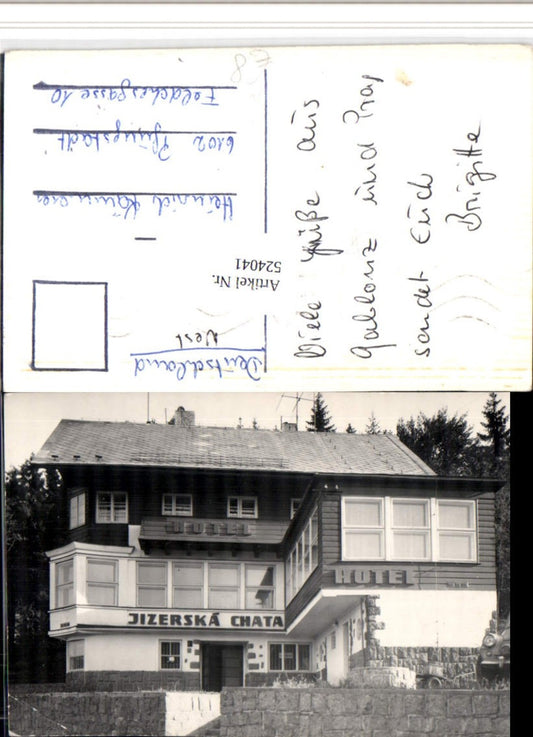 Viele Grüße aus
Gablonz und Prag
sendet Euch
Brigitte
Artikel Nr.
524041
Deutschland
West
Heinrich
6102 Pfungstadt
10
HOTEL
HOTEL
JIZERSKÁ CHATA